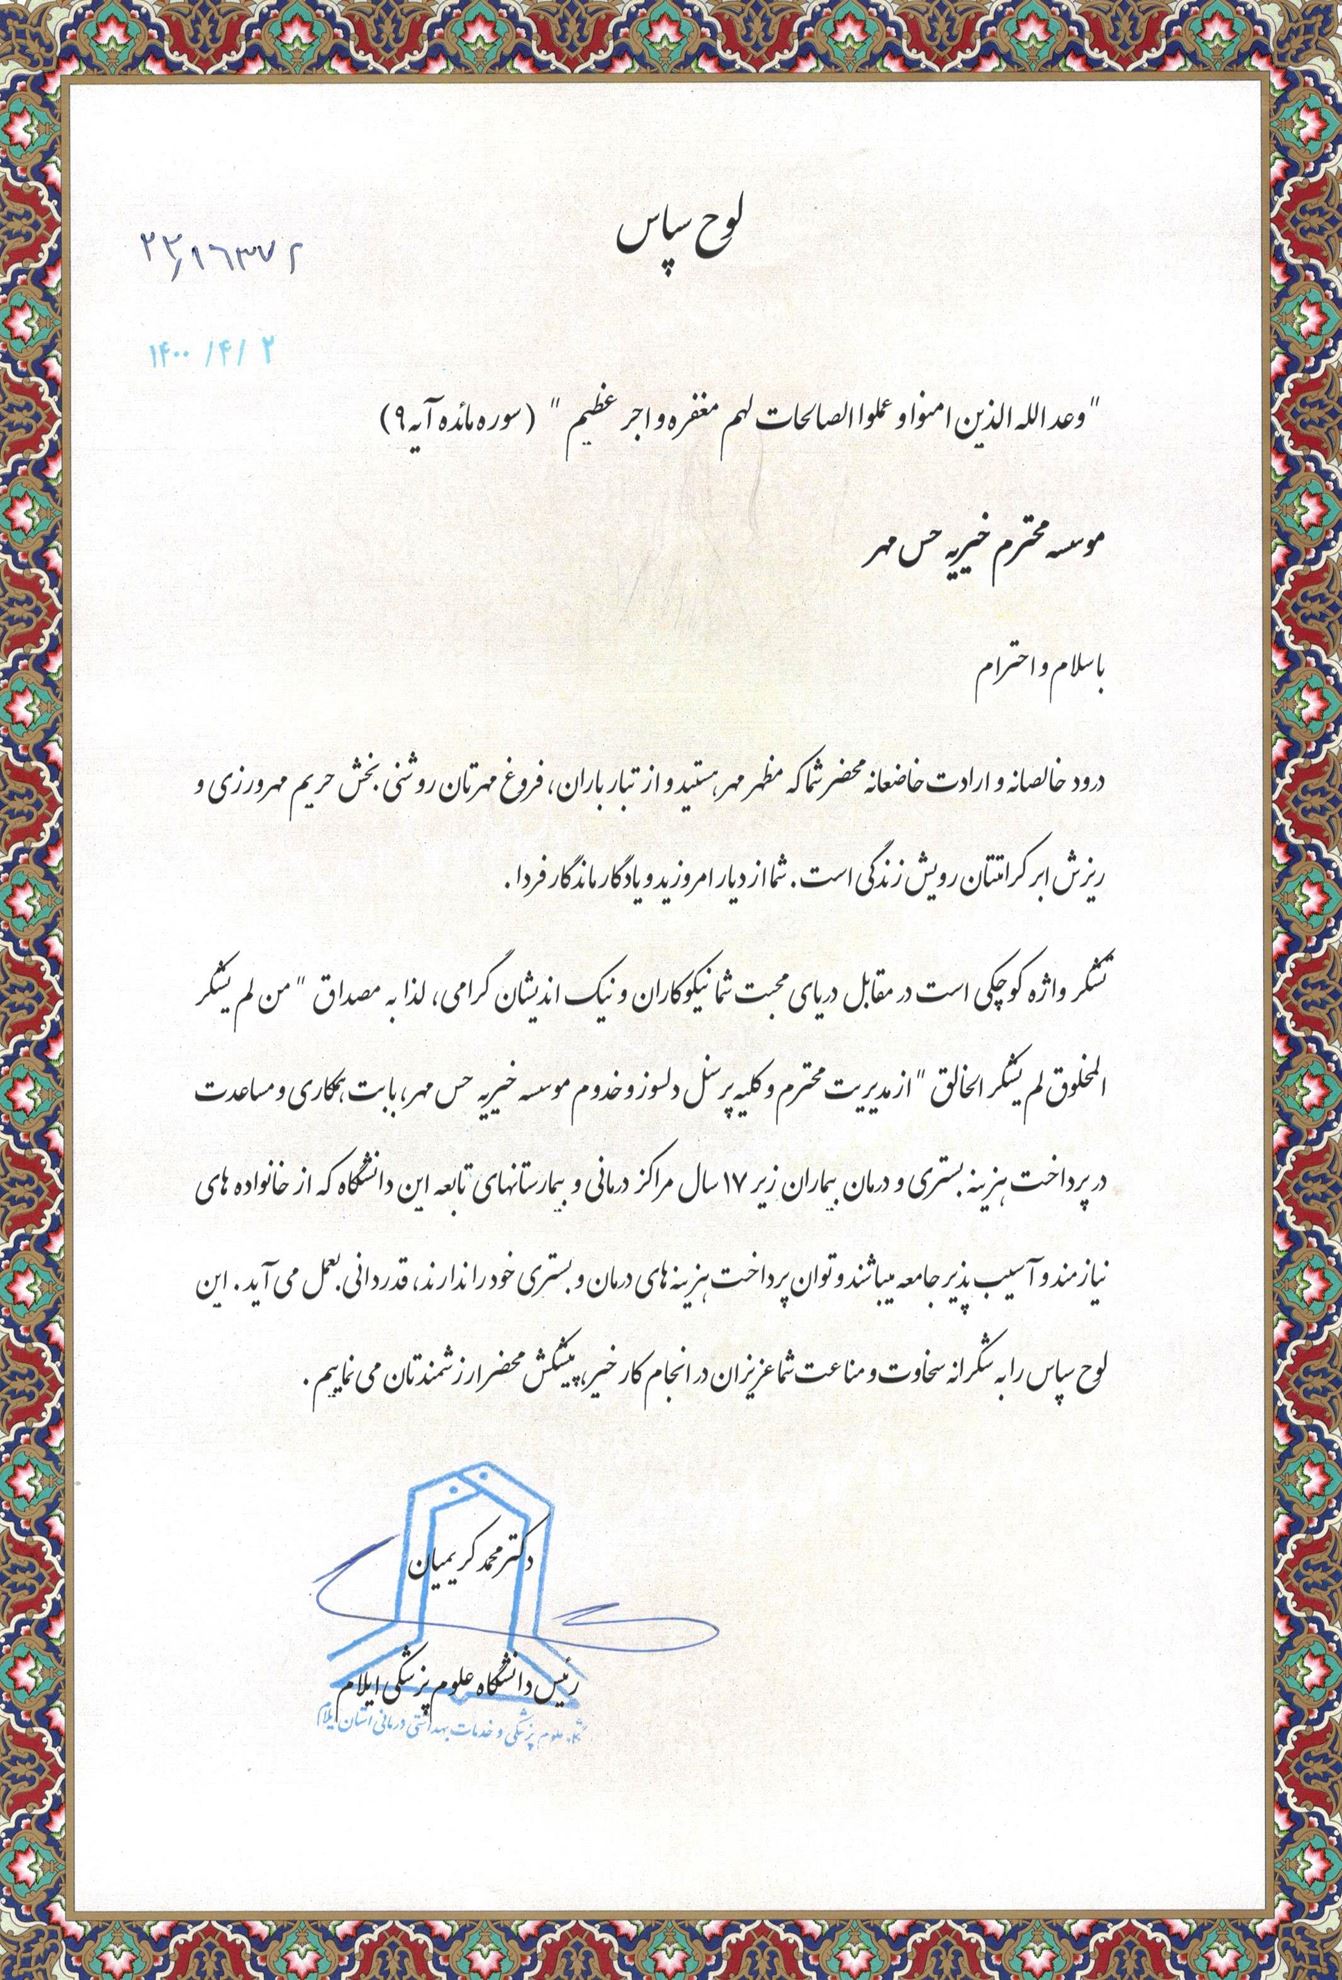 لوح سپاس
۱۴۰۰ /۴/ ۲
"وعد الله الذین امنوا و عملوا الصالحات لهم مغفره و اجر عظیم " (سوره مائده آیه ۹)
موسسه محترم خیریه حس مهر
با سلام و احترام
درود خالصانه و ارادت خاضعانه محضر شما که مظهر مهر هستید و از تبار باران، فروغ مهرتان روشنی بخش حریم مهرورزی و
ریزش ابر کرامتتان رویش زندگی است. شما از دیار امروزید و یادگار ماندگار فردا.
تشکر واژه کوچکی است در مقابل دریای محبت شما نیکوکاران و نیک اندیشان گرامی، لذا به مصداق "من لم یشکر
المخلوق لم یشکر الخالق" از مدیریت محترم و کلیه پرسنل دلسوز و خدوم موسسه خیریه حس مهر، بابت همکاری و مساعدت
در پرداخت هزینه بستری و درمان بیماران زیر ۱۷ سال مراکز درمانی و بیمارستانهای تابعه این دانشگاه که از خانواده های
نیازمند و آسیب پذیر جامعه میباشند و توان پرداخت هزینه های درمان و بستری خود را ندارند، قدردانی بعمل می آید. این
لوح سپاس را به شکرانه سخاوت و مناعت شما عزیزان در انجام کار خیر، پیشکش محضر ارزشمندتان می نماییم.
دکتر محمد کریمیان
رئیس دانشگاه علوم پزشکی ایلام
علوم پزشکی و خدمات بهداشتی درمانی استان ایلام